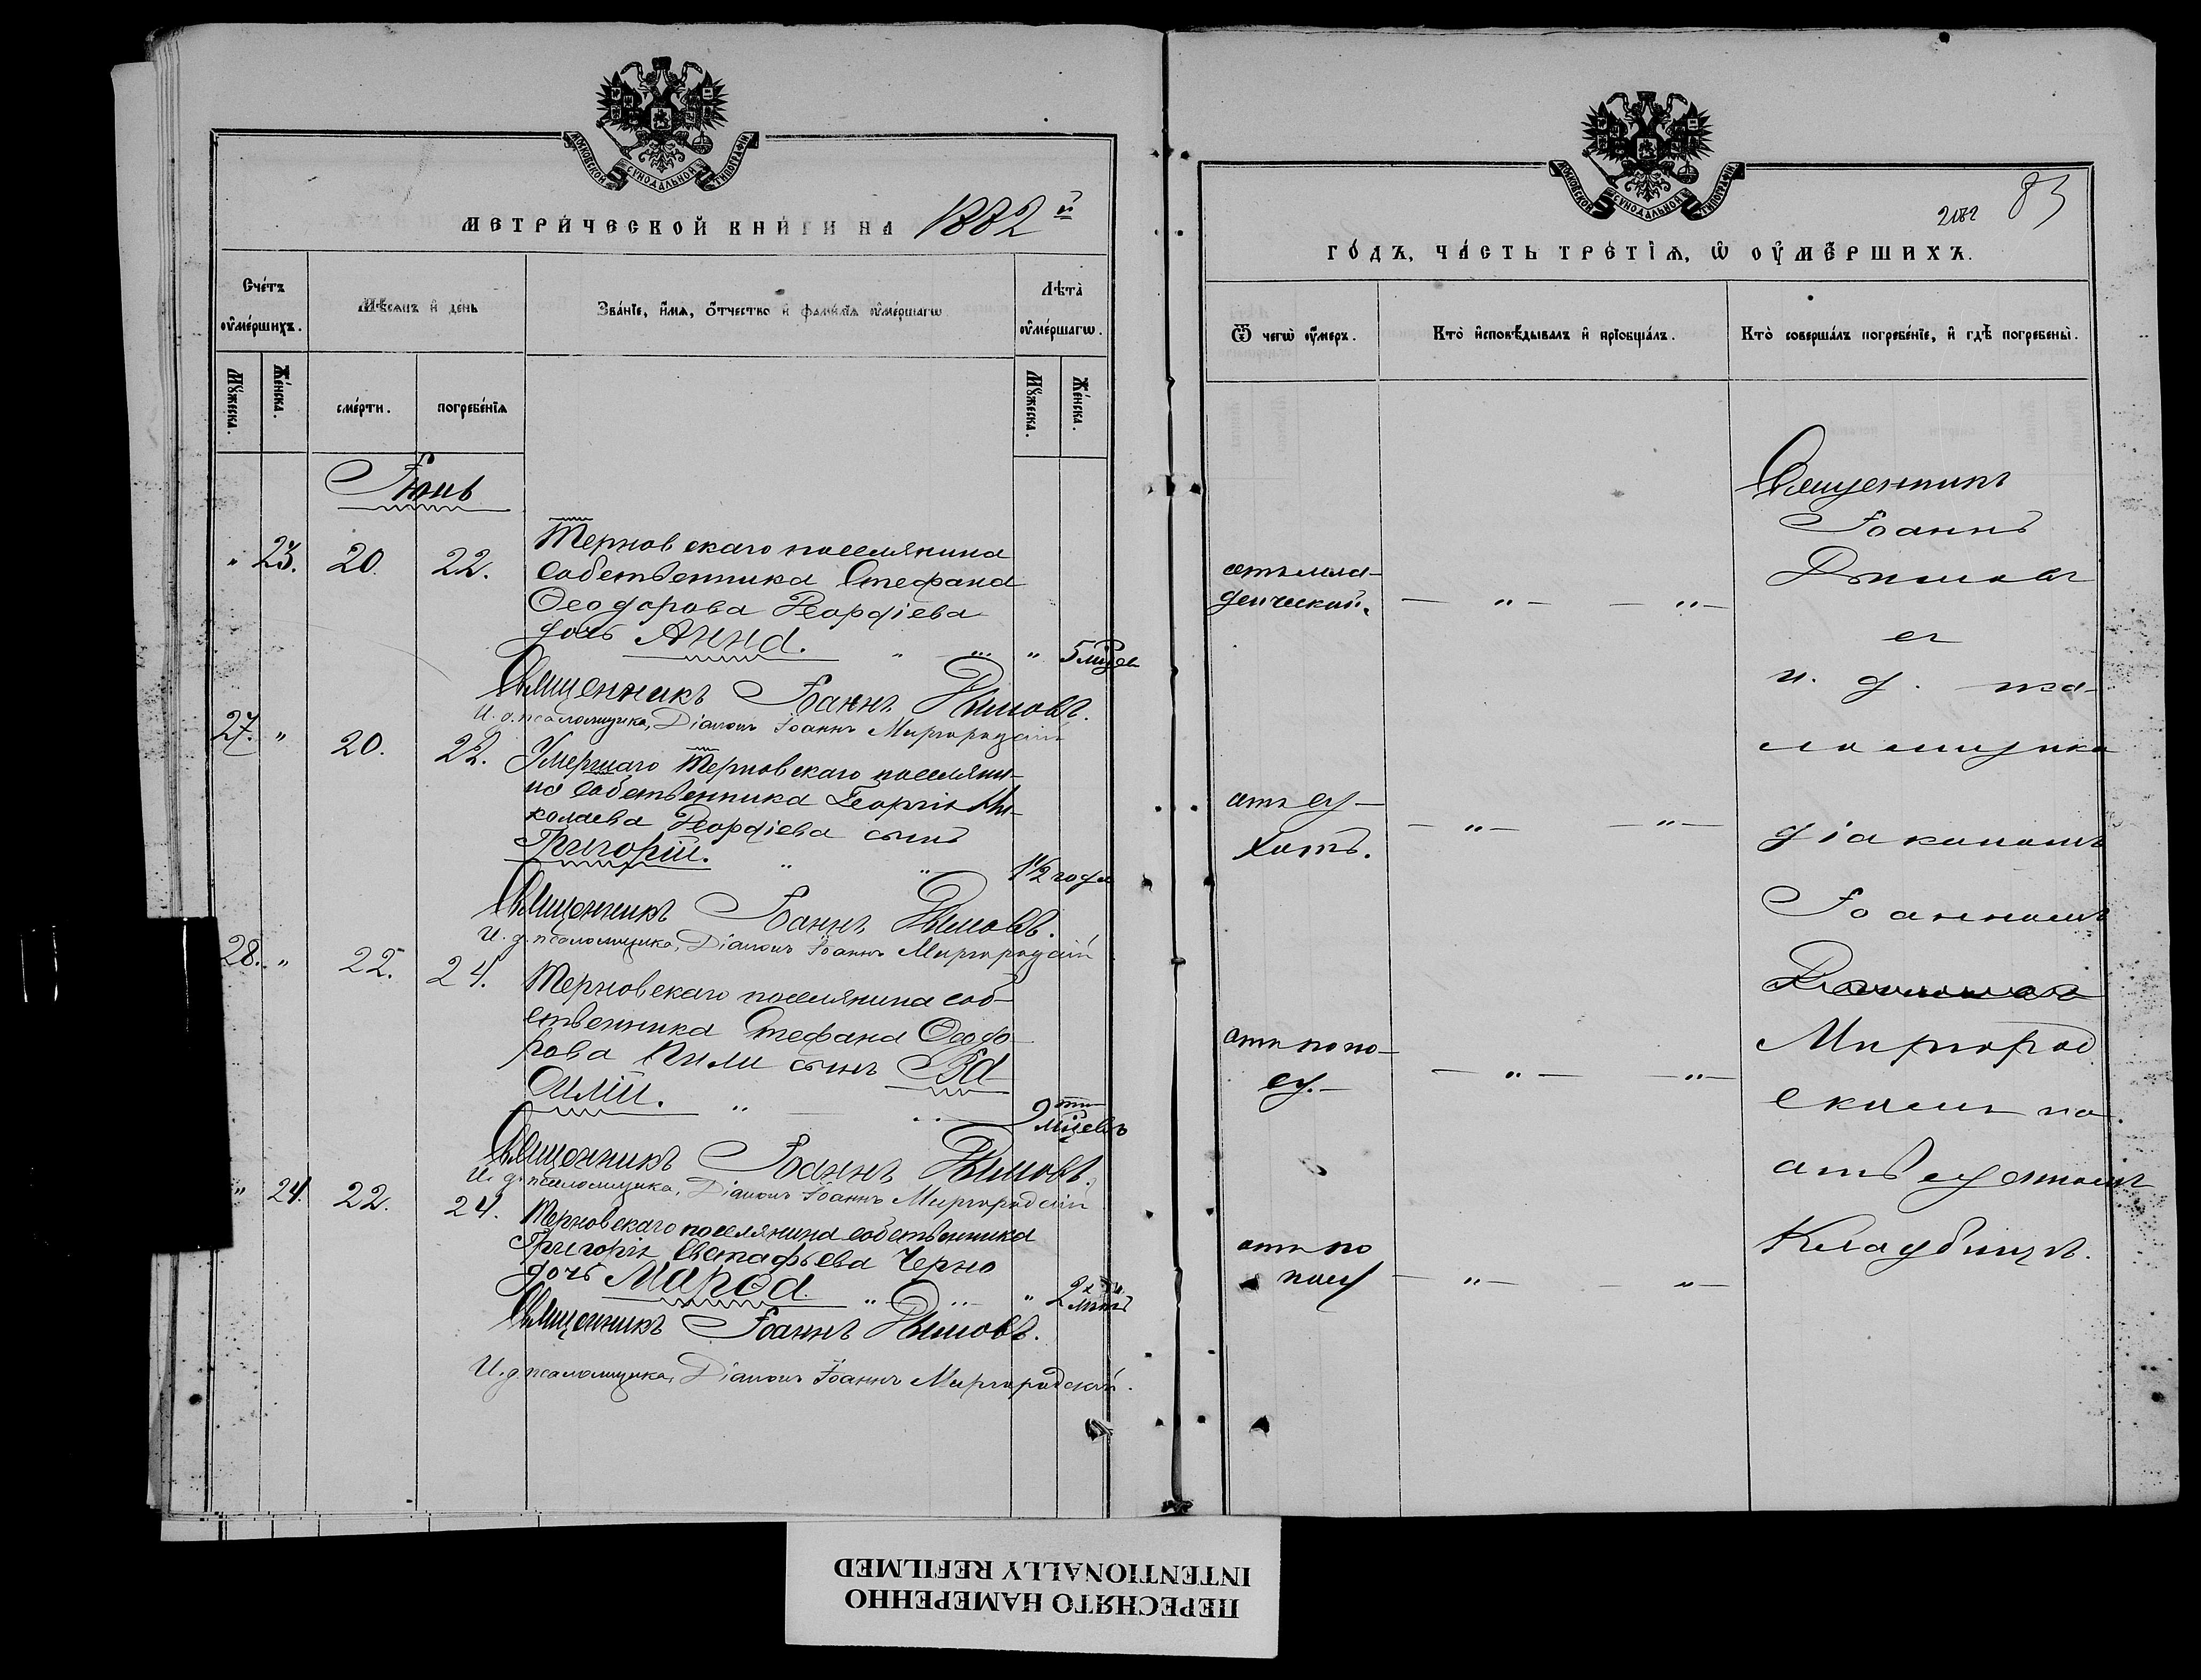 МОСКОВСКОЙ СѴНОДАЛЬНОЙ ТИПОГРАФІИ
МЕТРИ́ЧЕСКОЙ КНИ́ГИ НА 1882й
Сче́тъ ᲂу҆ме́ршихъ.
Мѣ́сяцъ и҆ де́нь
Зва́нїе, и҆́мѧ, ѻ҆́тчество и҆ фами́лїѧ ᲂу҆ме́ршагѡ
Лѣ́та ᲂу҆ме́ршагѡ.
Мꙋ́жеска.
Же́нска.
сме́рти.
погребе́нїѧ
Мꙋ́жеска.
Же́нска.
Іюнь
" 23. 20. 22.
Терновскаго поселянина
собственника Стефана
Ѳеодорова Георгіева
дочь Анна. " " " 5 мцев
Священникъ Іоаннъ Димовъ.
И. д. псаломщика, Діаконъ Іоаннъ Миргородскій
27. " 20. 22.
Умершаго Терновскаго поселяни-
на собственника Георгія Ни-
колаева Георгіева сынъ
Григорій. " " 1 1/2 года
Священникъ Іоаннъ Димовъ.
И. д. псаломщика, Діаконъ Іоаннъ Миргородскій
28. " 22. 24.
Терновскаго поселянина соб-
ственника Стефана Ѳеодо-
рова Кили сынъ Ва
силій. " " 9ти мцевъ
Священникъ Іоаннъ Димовъ.
И. д. псаломщика, Діаконъ Іоаннъ Миргородскій
" 24. 22. 24.
Терновскаго поселянина собственника
Григорія Евстафьева Черно
дочь Мароа. " " " 2хъ лѣтъ
Священникъ Іоаннъ Димовъ.
И. д. псаломщика, Діаконъ Іоаннъ Миргородскій.
МОСКОВСКОЙ СѴНОДАЛЬНОЙ ТИПОГРАФІИ
2182 83
ГО́ДЪ, ЧА́СТЬ ТРЕ́ТЇѦ, Ѡ ОУ҆МЕ́РШИХЪ.
Ѿ чегѡ̀ ᲂу҆́меръ.
Кто̀ и҆сповѣ́дывалъ и҆ прїобща́лъ.
Кто̀ соверша́лъ погребе́нїе, и҆ гдѣ̀ погребены̀.
отъ мла-
денческой. — " — — " —
отъ су-
хотъ. — " — — " —
отъ поно-
су. — — " — — " —
отъ по
носу — " — — " —
Священникъ
Іоаннъ
Димовъ
съ
и. д. пса-
ломщика
діакономъ
Іоанномъ
Миргород
скимъ на
отведенномъ
Кладбищѣ.
ПЕРЕСНЯТО НАМЕРЕННО
INTENTIONALLY REFILMED